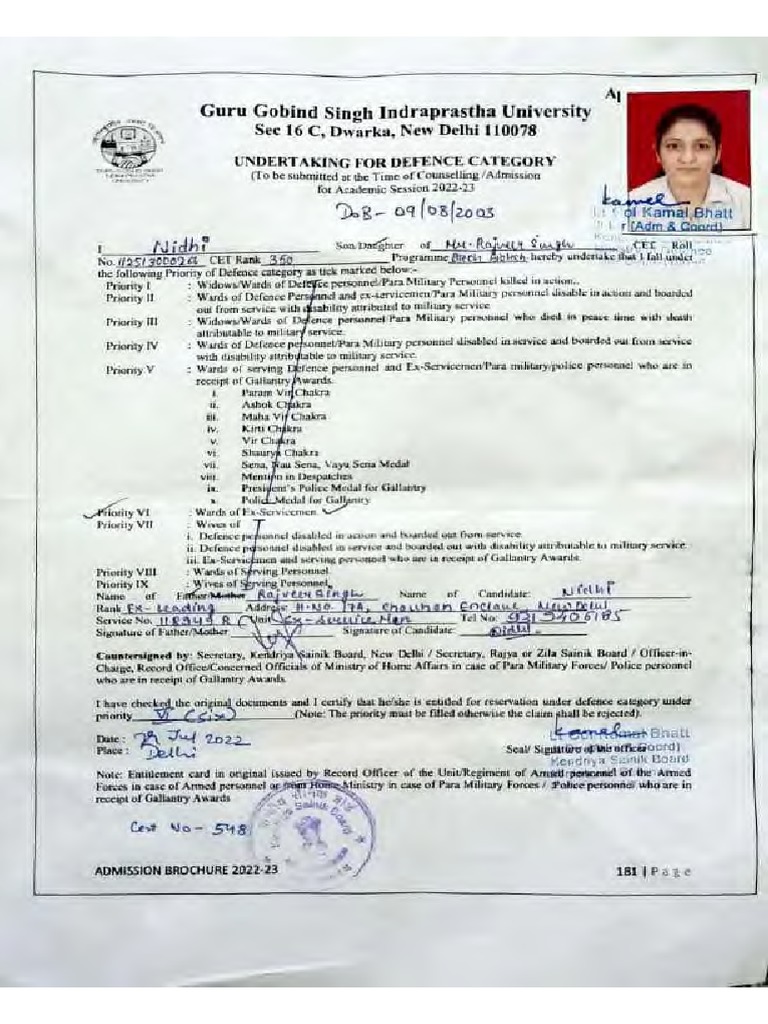 Guru Gobind Singh Indraprastha University
Sec 16 C, Dwarka, New Delhi 110078
UNDERTAKING FOR DEFENCE CATEGORY
(To be submitted at the Time of Counselling /Admission
for Academic Session 2022-23
DoB - 09/08/2003
Kamal
Lt Col Kamal Bhatt
(Adm & Coord)
I Nidhi Son/Daughter of Mr. Rajveer Singh CET Roll
No. CET Rank 350 Programme hereby undertake that I fall under
the following Priority of Defence category as tick marked below:-
Priority I : Widows/Wards of Defence personnel/Para Military Personnel killed in action..
Priority II : Wards of Defence Personnel and ex-servicemen/Para Military personnel disable in action and boarded
out from service with disability attributed to military service.
Priority III : Widows/Wards of Defence personnel/Para Military personnel who died in peace time with death
attributable to military service.
Priority IV : Wards of Defence personnel/Para Military personnel disabled in service and boarded out from service
with disability attributable to military service.
Priority V : Wards of serving Defence personnel and Ex-Servicemen/Para military/police personnel who are in
receipt of Gallantry Awards.
i. Param Vir Chakra
ii. Ashok Chakra
iii. Maha Vir Chakra
iv. Kirti Chakra
v. Vir Chakra
vi. Shaurya Chakra
vii. Sena, Nau Sena, Vayu Sena Medal
viii. Mention in Despatches
ix. President's Police Medal for Gallantry
x. Police Medal for Gallantry
Priority VI : Wards of Ex-Servicemen
Priority VII : Wives of
i. Defence personnel disabled in action and boarded out from service.
ii. Defence personnel disabled in service and boarded out with disability attributable to military service.
iii. Ex-Servicemen and serving personnel who are in receipt of Gallantry Awards.
Priority VIII : Wards of Serving Personnel.
Priority IX : Wives of Serving Personnel.
Name of Father/Mother Rajveer Singh Name of Candidate: Nidhi
Rank Ex- Leading Address H.No. 17A, Chauhan Enclave New Delhi
Service No. 118949 R Unit Ex-Service Man Tel No:
Signature of Father/Mother Signature of Candidate: Nidhi
Countersigned by: Secretary, Kendriya Sainik Board, New Delhi / Secretary, Rajya or Zila Sainik Board / Officer-in-
Charge, Record Office/Concerned Officials of Ministry of Home Affairs in case of Para Military Forces/ Police personnel
who are in receipt of Gallantry Awards
I have checked the original documents and I certify that he/she is entitled for reservation under defence category under
priority VI (Six) (Note: The priority must be filled otherwise the claim shall be rejected).
Date : 29 Jul 2022
Place : Delhi
Kamal Bhatt
Seal/ Signature of the officer
Kendriya Sainik Board
Note: Entitlement card in original issued by Record Officer of the Unit/Regiment of Armed personnel of the Armed
Forces in case of Armed personnel or from Home Ministry in case of Para Military Forces / Police personnel who are in
receipt of Gallantry Awards
Cert No - 548
ADMISSION BROCHURE 2022-23
181 | Page